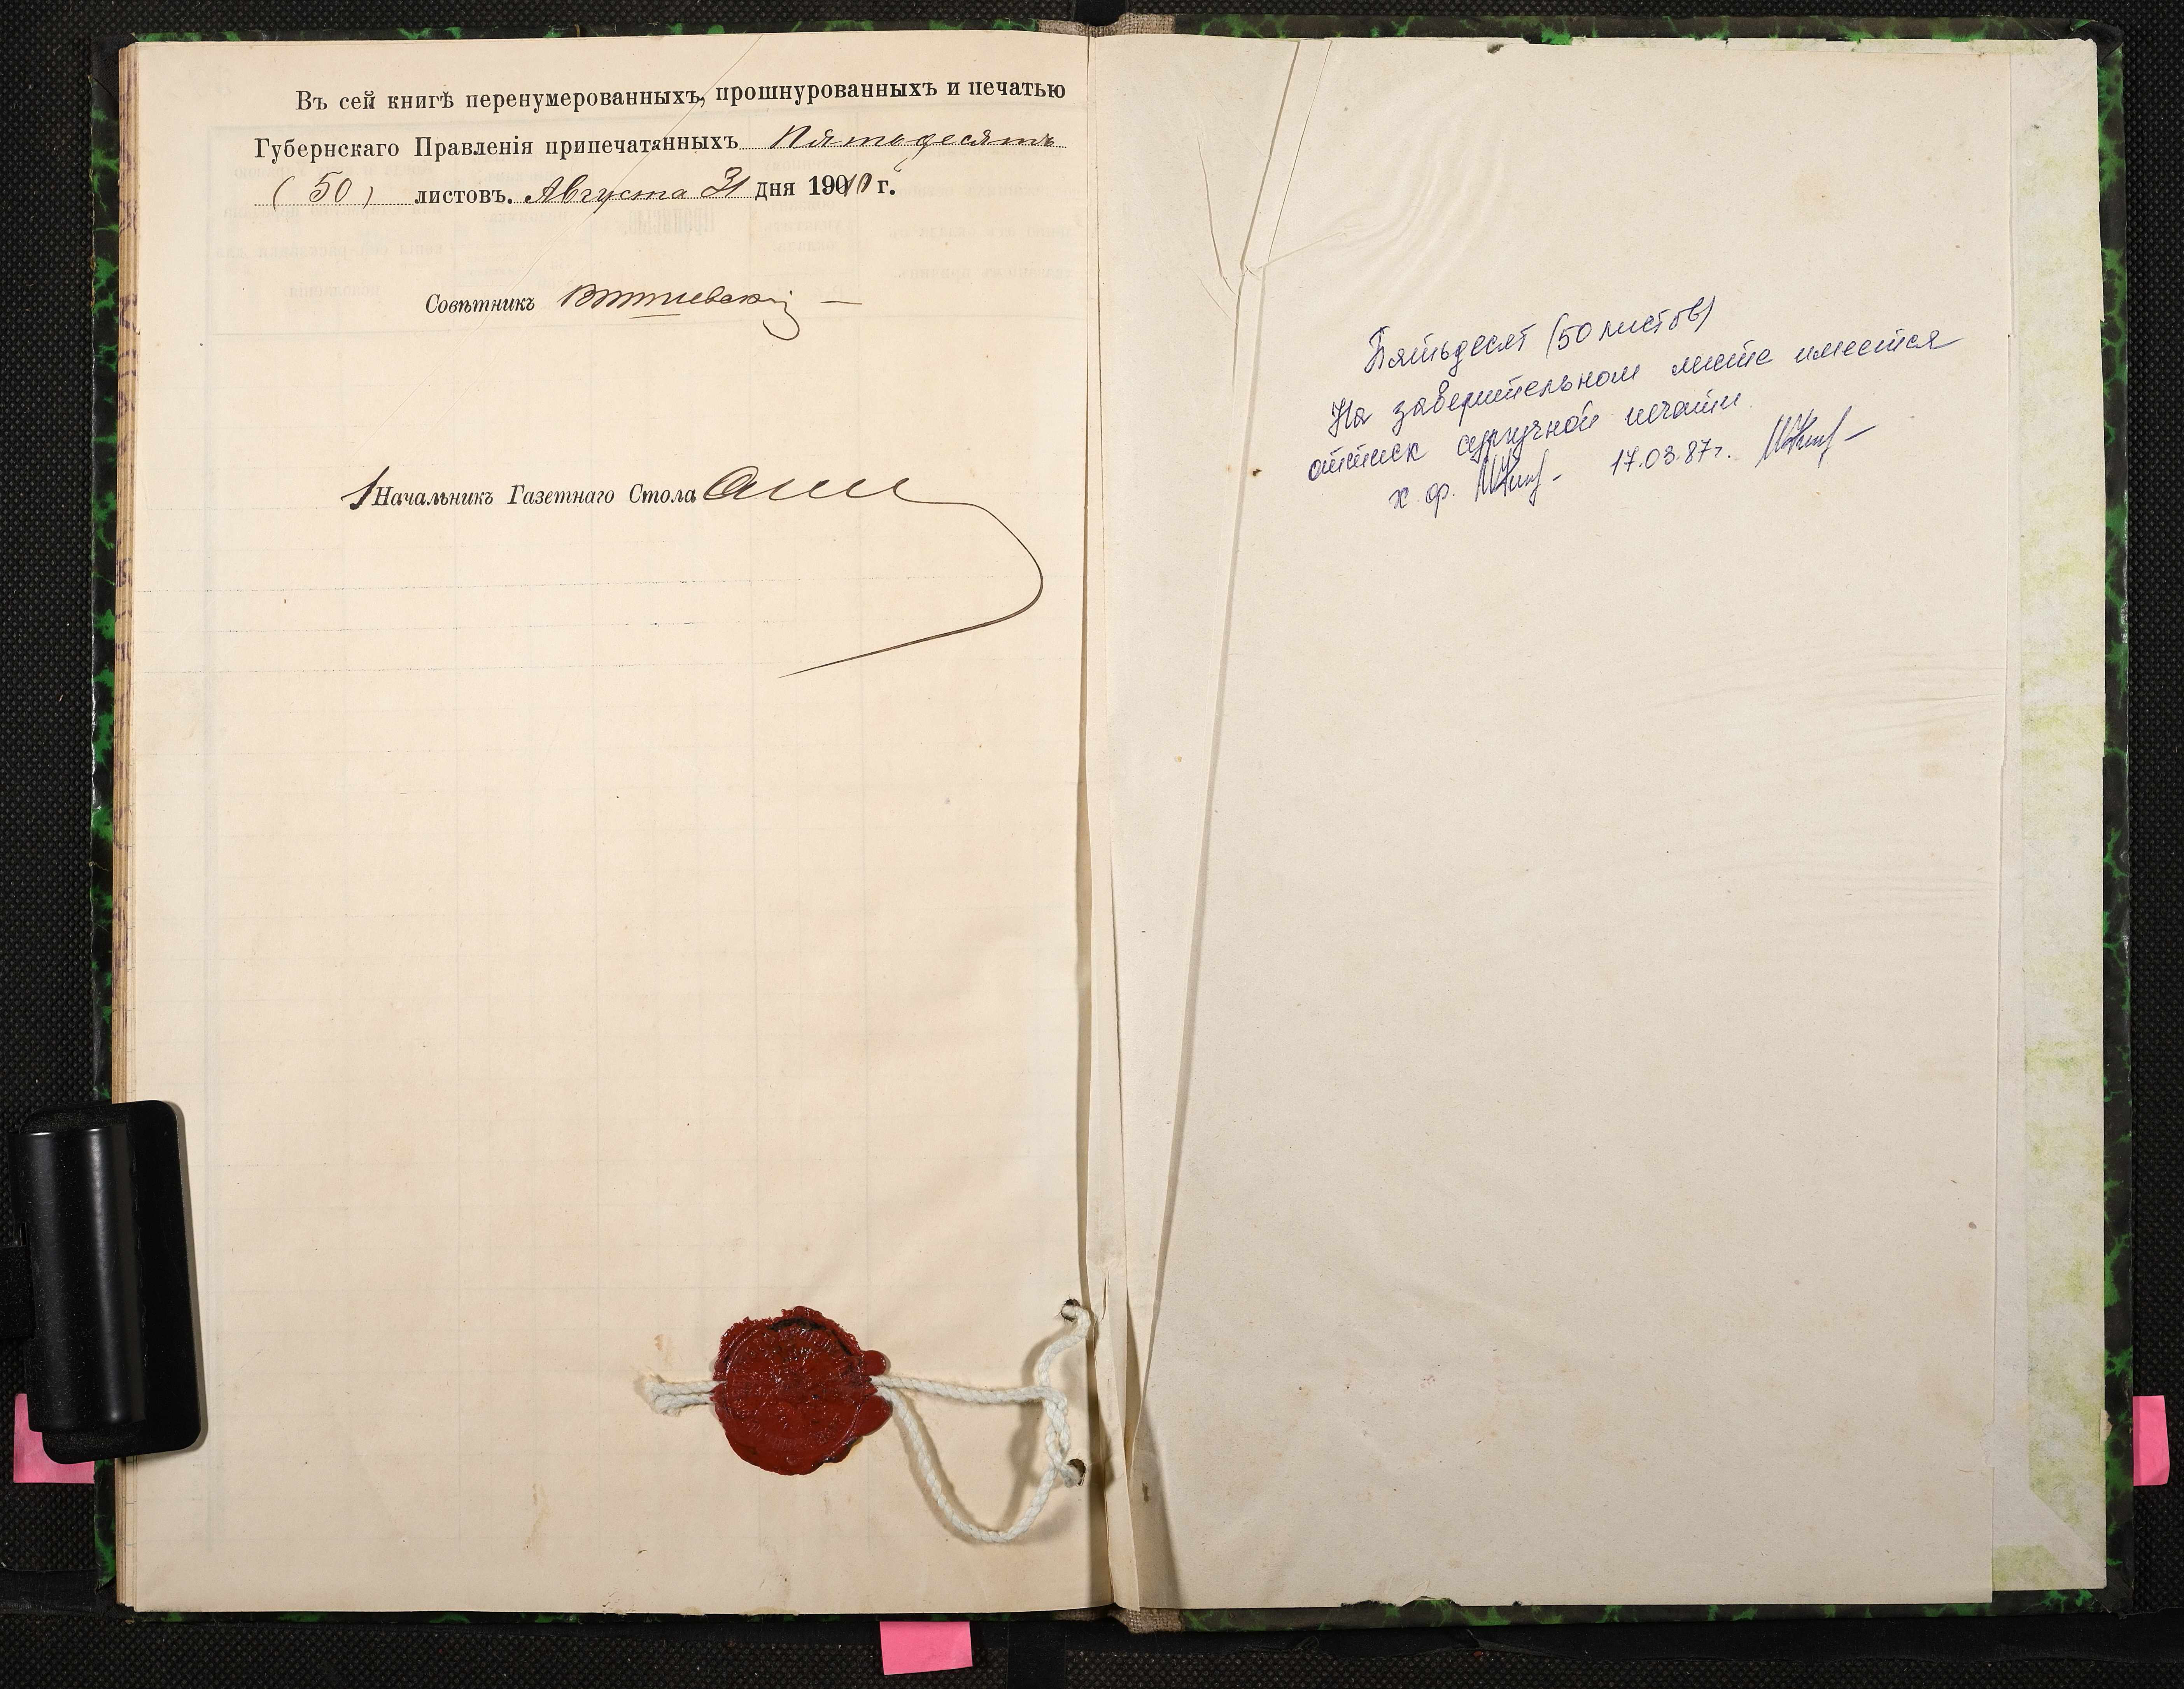 Въ сей книгѣ перенумерованныхъ, прошнурованныхъ и печатью
Губернскаго Правленія припечатанныхъ Пятьдесятъ
(50) листовъ. Августа 31 дня 1910 г.
Совѣтникъ
Начальникъ Газетнаго Стола
Пятьдесят (50 листов)
На заверительном листе имеется
оттиск сургучной печати
х. ф. 17.03.87г.